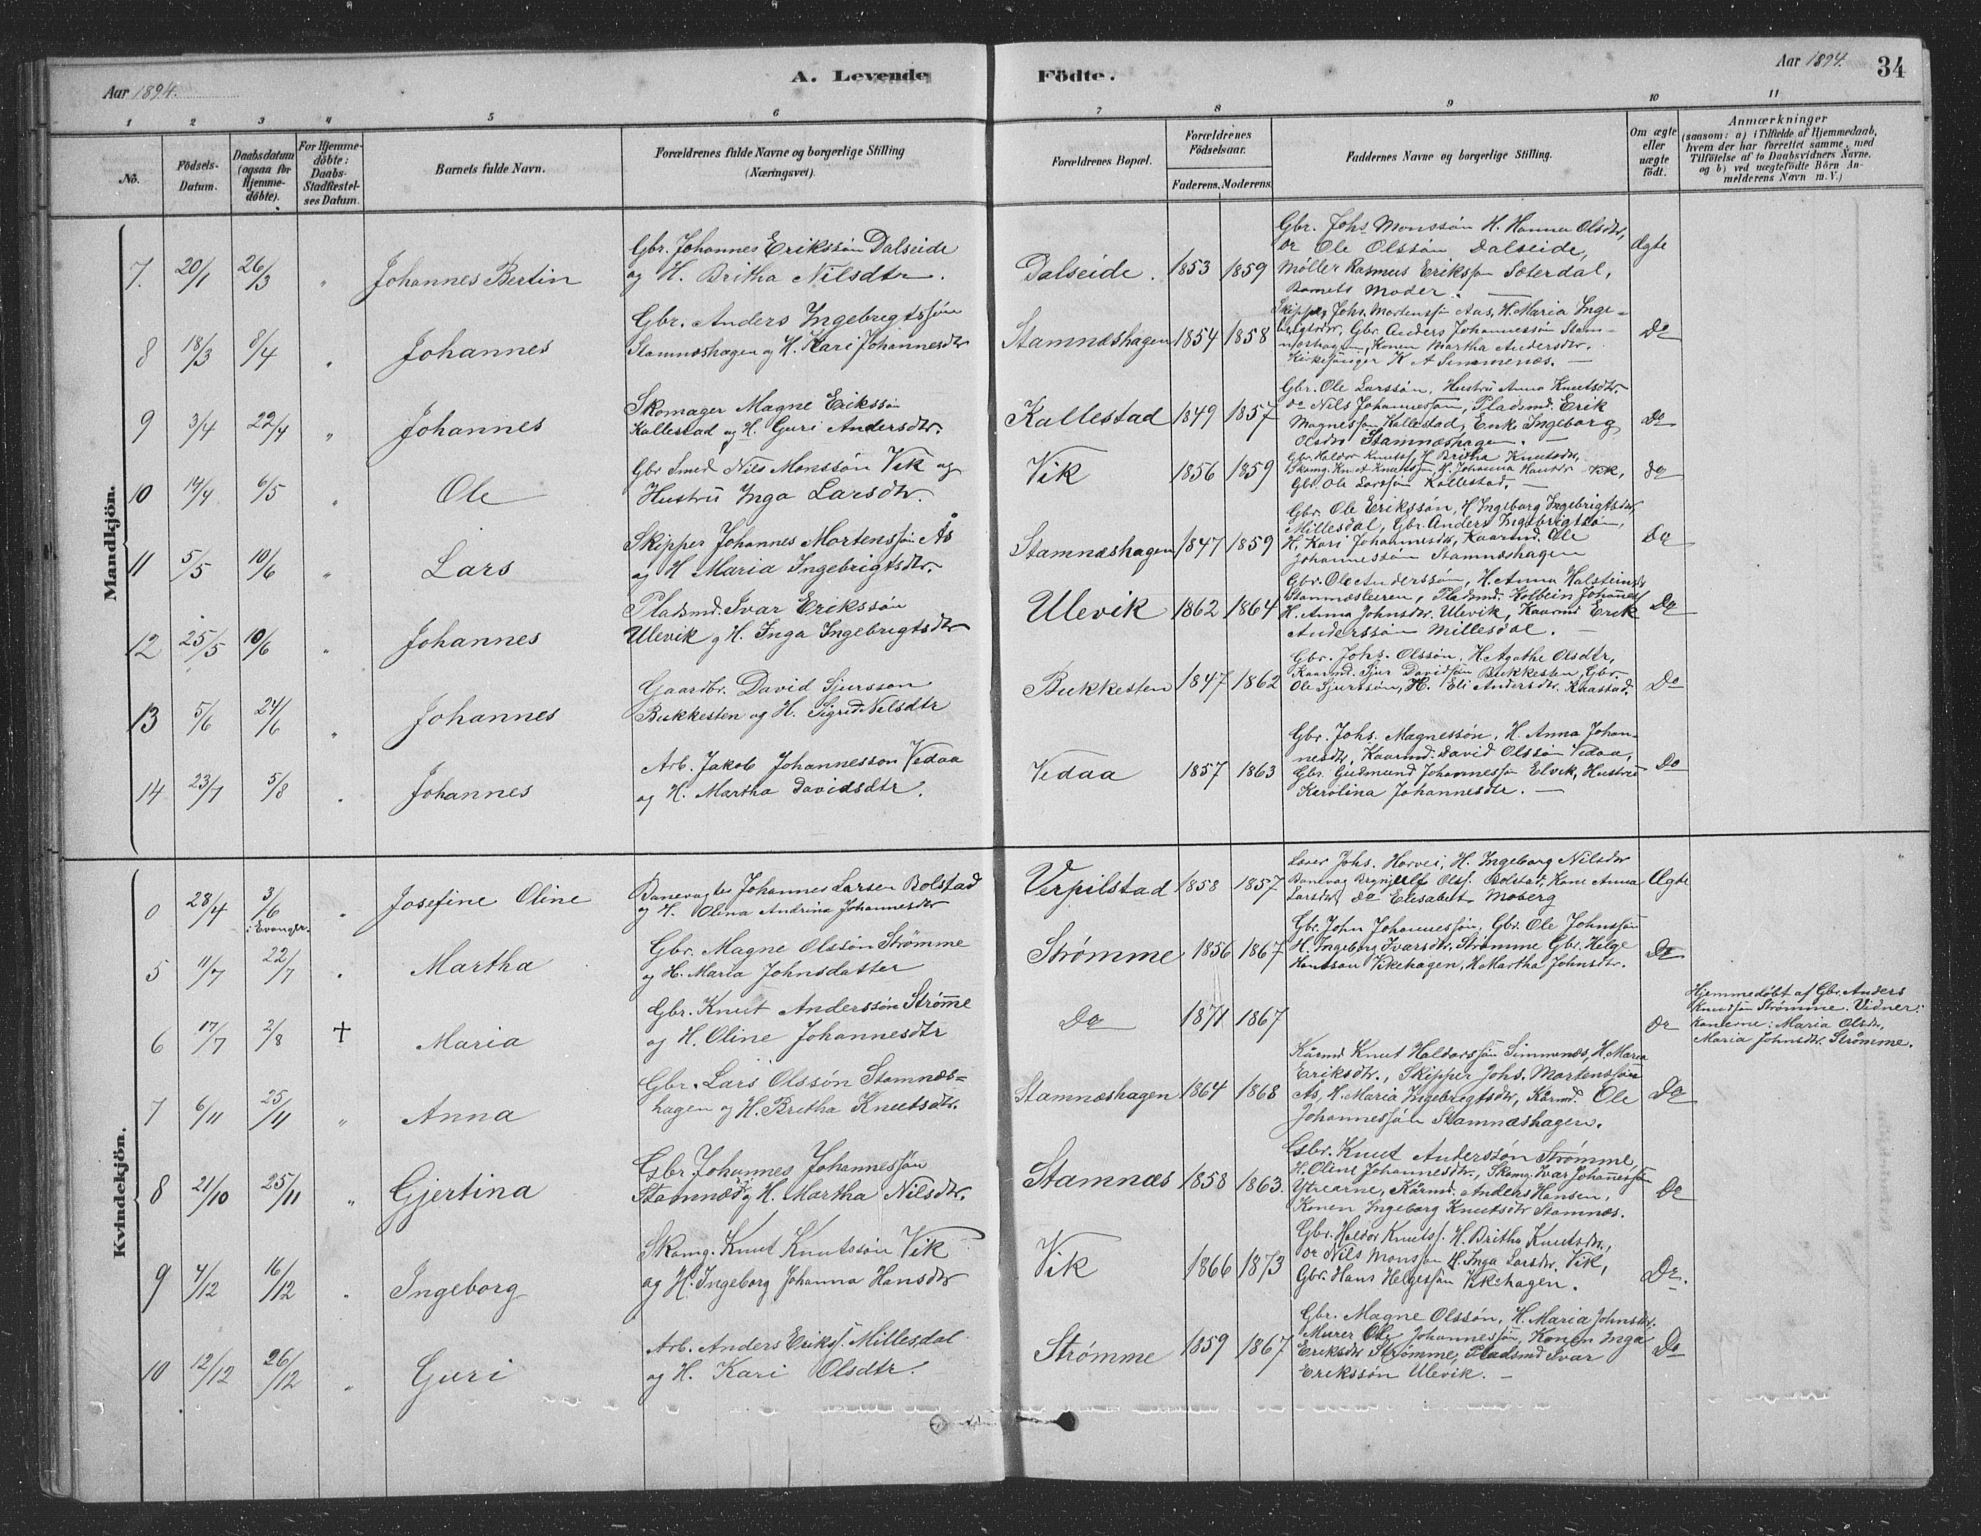 Aar 1894.
A. Levende
Födte.
Aar 1894.
34
1 2 3 4 5 6 7 8 9 10 11
No.
Födsels-Datum.
Daabsdatum (ogsaa for Hjemme-döbte).
For Hjemme-döbte: Daabs-Stadfæstel-ses Datum.
Barnets fulde Navn.
Forældrenes fulde Navne og borgerlige Stilling (Næringsvei).
Forældrenes Bopæl.
Forældrenes Födselsaar.
Faderens. Moderens.
Faddernes Navne og borgerlige Stilling.
Om ægte eller uægte födt.
Anmærkninger
(saasom: a) i Tilfælde af Hjemmedaab, hvem der har forrettet samme, med Tilföielse af to Daabsvidners Navne, og b) ved uægtefödte Börn An-melderens Navn m. V.)
Mandkjön.
7. 20/1 26/3 " Johannes Bertin
Gbr. Johannes Erikssön Dalseide
og H. Britha Nilsdtr.
Dalseide. 1853 1859
Gbr. Johs Monssön H. Hanna Olsdtr,
do Ole Olssön Dalseide,
Möller Rasmus Erikssön Sæterdal,
Barnets Moder. —
Ægte
8 18/3 8/4 " Johannes
Gbr. Anders Ingebrigtssön
Stamnæshagen og H. Kari Johannesdtr
Stamnæshagen 1854 1858
Skipper Johs. Mortenssön Aas, H. Maria Inge-
brigtsdtr, Gbr. Anders Johannessön Stam-
næshagen, Konen Martha Andersdtr.
Kirkesanger K A Simmenæs. —
Do
9 3/4 22/4 " Johannes
Skomager Magne Erikssön
Kallestad og H. Guri Andersdtr.
Kallestad 1849 1857
Gbr. Ole Larssön, Hustru Anna Knutsdtr.
do Nils Johannessön, Pladsmd. Erik
Magnessön Kallestad, Enke Ingeborg
Olsdtr Stamnæshagen. —
Do
10 14/4 6/5 " Ole
Gbr Smed Nils Monssön Vik og
Hustru Inga Larsdtr.
Vik 1856 1859
Gbr. Haldor Knutss, H Britha Knutsdtr,
Skomg. Knut Knutssön, H. Johanna Hansdtr Vik,
Gbr Ole Larssön Kallestad. —
do
11 5/5 10/6 " Lars
Skipper Johannes Mortenssön Ås
og H Maria Ingebrigtsdtr.
Stamnæshagen 1847 1859
Gbr. Ole Erikssön, H Ingeborg Ingebrigtsdtr
Millesdal, Gbr. Anders Ingebrigtssön,
H. Kari Johannesdtr, Kaarmd. Ole
Johannessön Stamnæshagen
Do
12 25/5 10/6 " Johannes
Pladsmd. Ivar Erikssön
Ulevik og H. Inga Ingebrigtsdtr
Ulevik 1862 1864
Gbr. Ole Anderssön, H. Anna Halsteinsdtr
Stamnæsleeren, Pladsmd. Kolbein Johannes
H. Anna Johnsdtr. Ulevik, Kaarmd Erik
Anderssön Millesdal. —
Do
13 5/6 24/6 " Johannes
Gaardbr. David Sjursson
Bukkesten og H. Sigrid Nilsdtr
Bukkesten 1847 1862
Gbr. Johs. Olssön, H Agathe Olsdtr,
Kaarmd. Sjur Davidssön Bukkesten, Gbr.
Ole Sjurssön, H. Eli Andersdtr Knastad.
Do
14 23/7 5/8 " Johannes
Arb. Jakob Johannesson Vedaa
og H. Martha Davidsdtr.
Vedaa 1857 1863
Gbr. Johs. Magnessön, H. Anna Johan-
nesdtr, Kaarmd. David Olssön Vedaa,
Gbr. Gudmund Johannessön Elvik, Hustru
Karolina Johannesdtr. —
Do
Kvindekjön.
0 28/4 3/6 i Evanger. " Josefine Oline
Banevagter Johannes Larsen Bolstad
og H. Olina Andrina Johannesdtr
Verpilstad 1858 1857
Lærer Johs. Horvei, H. Ingeborg Nilsdtr
Banevag Brynjulf Olss. Bolstad, Kone Anna
Larsdtr, Do Elisabet Moberg
Ægte
5 11/7 22/7 " Martha
Gbr. Magne Olssön Strömme
og H. Maria Johnsdatter
Strømme 1856 1867
Gbr. John Johannessön, Gbr. Ole Johnssön
H. Ingeborg Ivarsdtr. Strømme Gbr. Helge
Hanssön Vikehagen, H. Martha Johnsdtr.
Do
6 17/7 2/8 † Maria
Gbr. Knut Anderssön Strømme
og H. Oline Johannesdtr
Do 1871 1867
Do
Hjemmedöbt af Gbr. Anders
Knutssön Strømme. Vidner:
Konerne: Maria Olsdtr,
Maria Johnsdtr. Strømme.
7 6/11 25/11 " Anna
Gbr. Lars Olssön Stamnæs-
hagen og H. Britha Knutsdtr.
Stamnæshagen 1864 1868
Kårmd Knut Haldorssön Simmenæs, H. Maria
Eriksdtr., Skipper Johs. Mortenssön
As, H. Maria Ingebrigtsdtr, Kårmd. Ole
Johannessön Stamnæshagen.
Do
8 21/10 25/11 " Gjertina
Gbr Johannes Johannessön
Stamnæs og H. Martha Nilsdtr.
Stamnæs 1858 1863.
Gbr. Knut Anderssön Strømme,
H. Oline Johannesdtr., Skomg. Ivar Johannessön
Ytrearne, Kårmd. Anders Hansen,
Konen Ingeborg Knutsdtr Stamnæs.
Do
9 4/12 16/12 " Ingeborg
Skomg. Knut Knutssön Vik
og H. Ingeborg Johanna Hansdtr
Vik 1866 1873
Gbr. Haldor Knutss. H. Britha Knutsdtr.,
do Nils Monsson H. Inga Larsdtr. Vik,
Gbr. Hans Helgessön Vikehagen.
Do.
10 12/12 26/12 " Guri
Arb. Anders Erikss. Millesdal
og H. Kari Olsdtr.
Strømme 1859 1867
Gbr. Magne Olssön, H. Maria Johnsdtr.
Murer Ole Johannessön, Konen Inga
Eriksdtr Strømme, Pladsmd Ivar
Erikssön Ulevik. —
Do